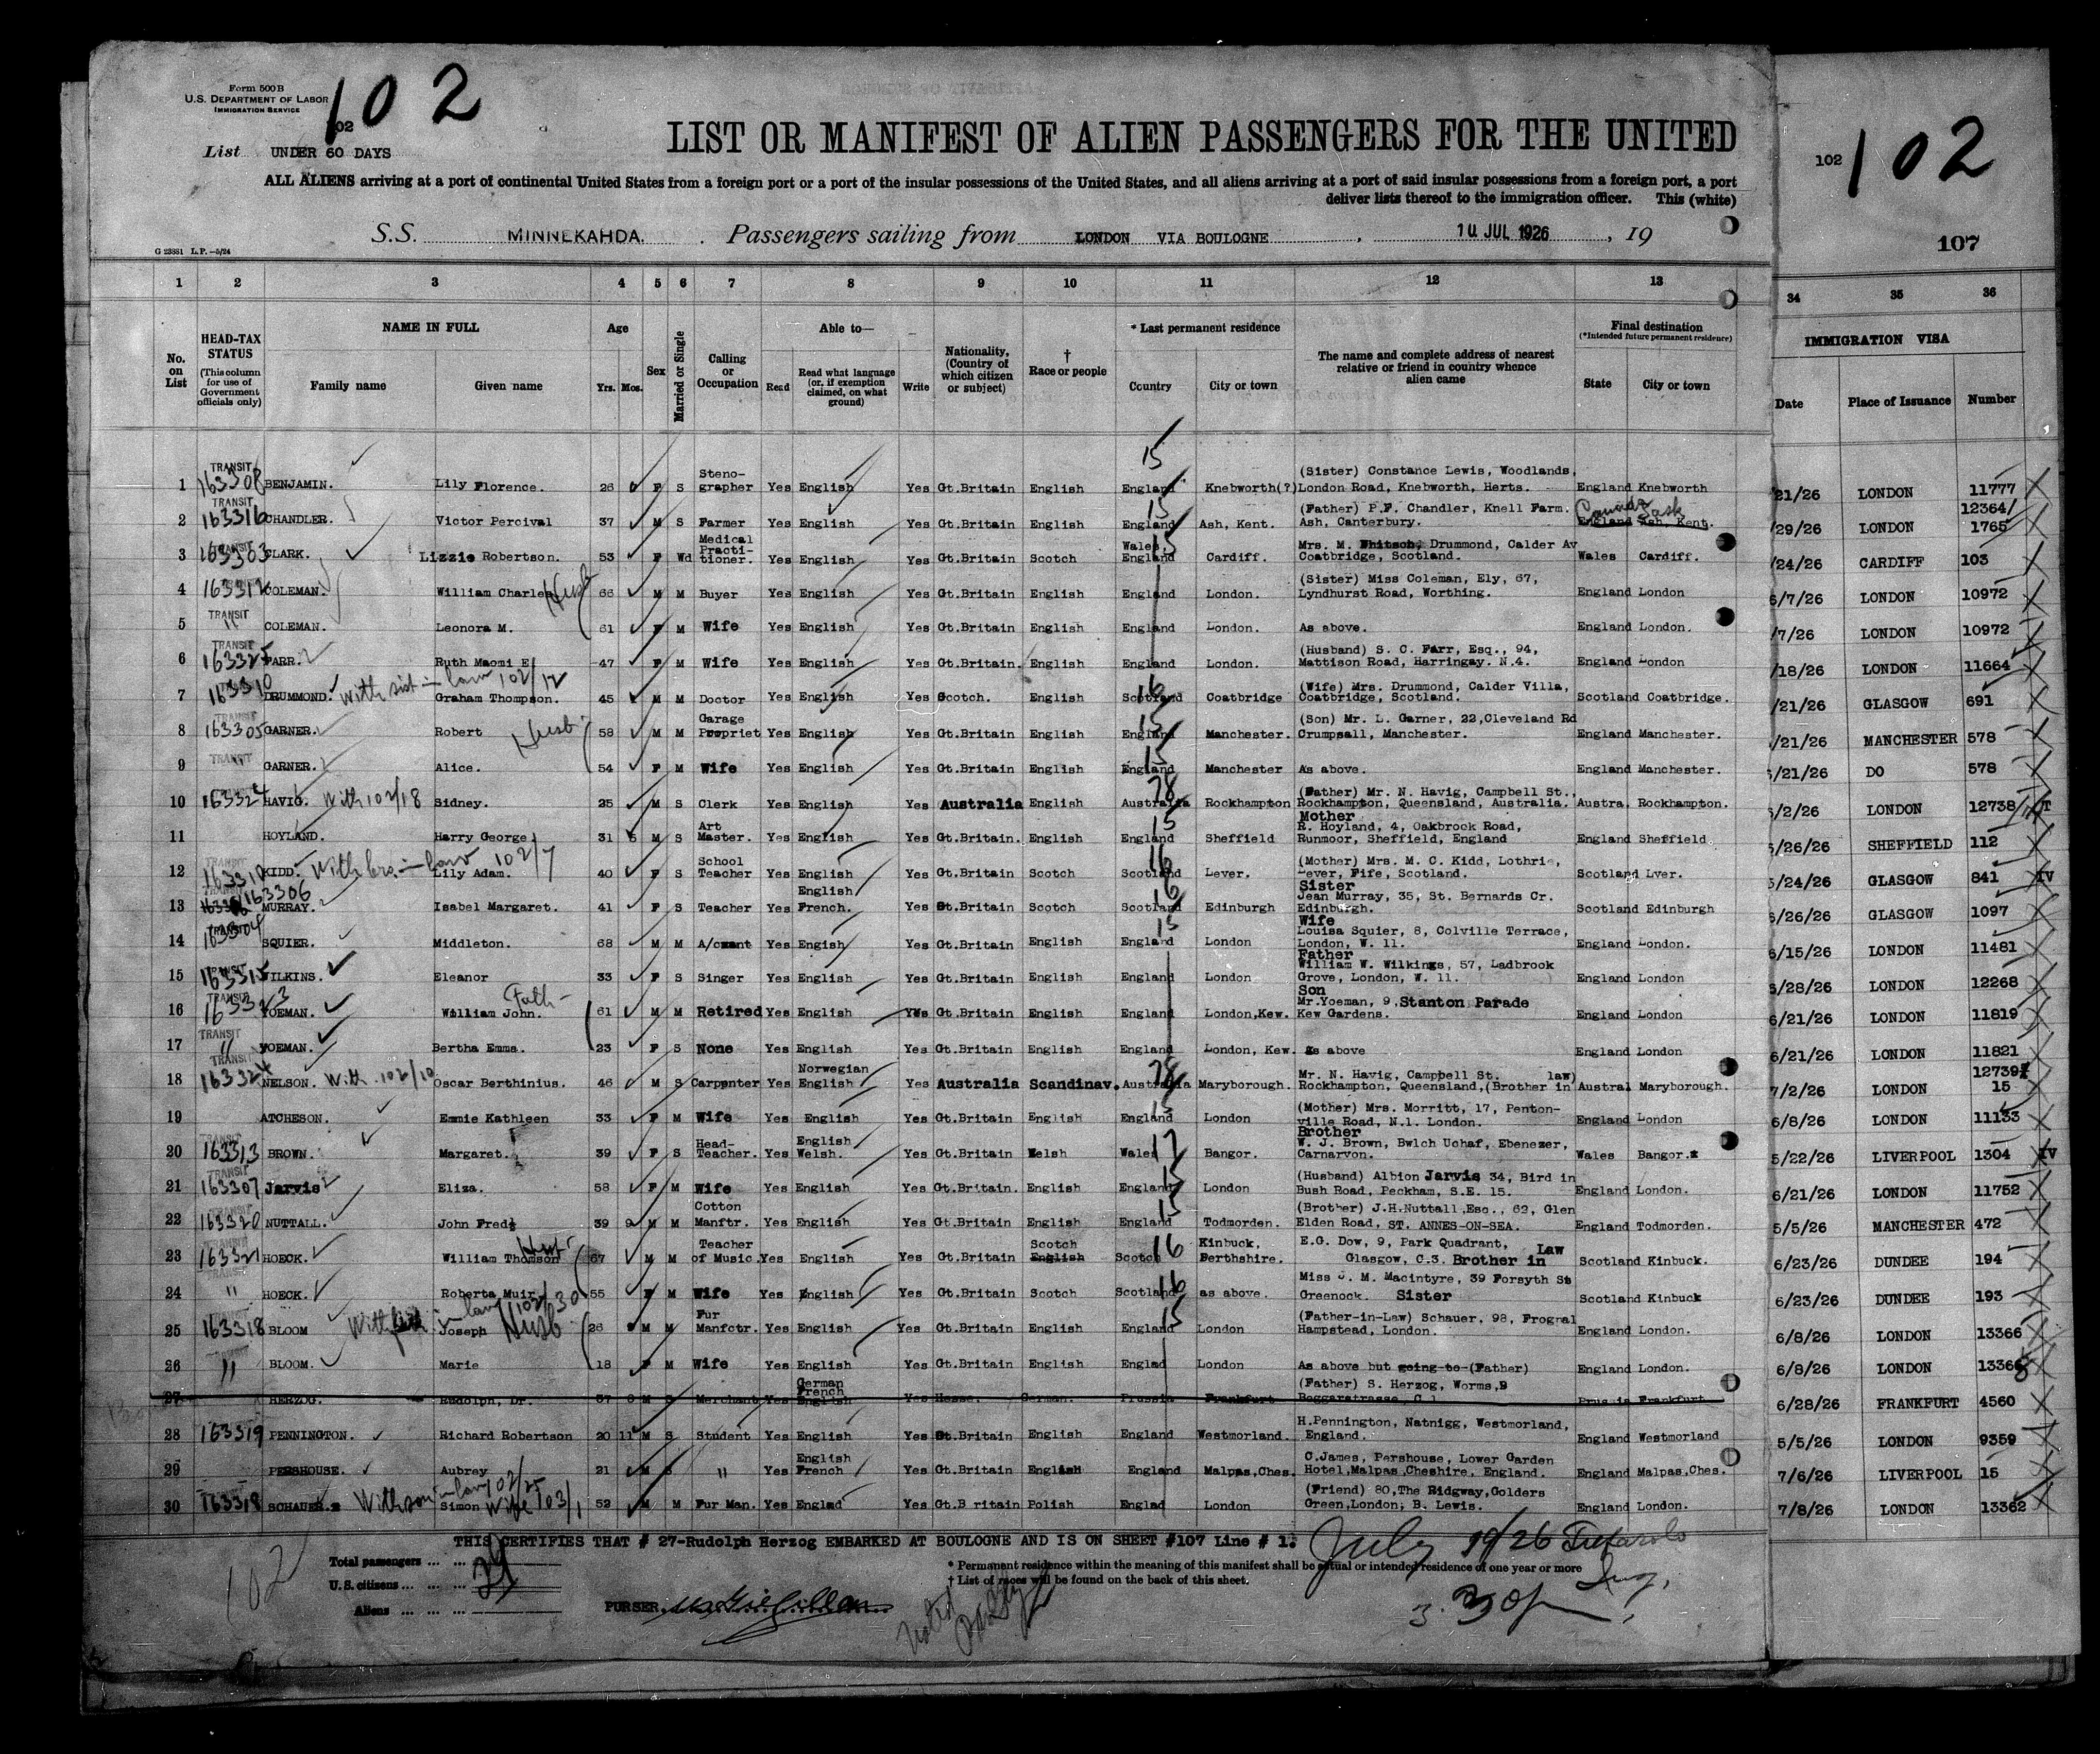 Form 500 B
U.S. DEPARTMENT OF LABOR
IMMIGRATION SERVICE
102
102
List UNDER 60 DAYS
LIST OR MANIFEST OF ALIEN PASSENGERS FOR THE UNITED
ALL ALIENS arriving at a port of continental United States from a foreign port or a port of the insular possessions of the United States, and all aliens arriving at a port of said insular possessions from a foreign port, a port
deliver lists thereof to the immigration officer. This (white)
S.S. MINNEKAHDA. Passengers sailing from LONDON VIA BOULOGNE, 10 JUL 1926, 19
G 23881 L.P.—5/24
102 102
107
1 2 3 4 5 6 7 8 9 10 11 12 13 34 35 36
No. on List
HEAD-TAX STATUS
(This column for use of Government officials only)
NAME IN FULL
Family name Given name
Age
Yrs. Mos.
Sex
Married or Single
Calling or Occupation
Able to—
Read
Read what language (or, if exemption claimed, on what ground)
Write
Nationality, (Country of which citizen or subject)
† Race or people
* Last permanent residence
Country City or town
The name and complete address of nearest relative or friend in country whence alien came
Final destination
(*Intended future permanent residence)
State City or town
IMMIGRATION VISA
Date Place of Issuance Number
1 TRANSIT 163308 BENJAMIN. Lily Florence. 26 F S Steno-grapher Yes English Yes Gt.Britain English England 15 Knebworth(?) (Sister) Constance Lewis, Woodlands, London Road, Knebworth, Herts. England Knebworth 21/26 LONDON 11777
2 TRANSIT 163316 CHANDLER. Victor Percival 37 M S Farmer Yes English Yes Gt.Britain English England 15 Ash, Kent. (Father) P.F. Chandler, Knell Farm. Ash, Canterbury. England Ash, Kent. Canada Sask /29/26 LONDON 12364/ 1765
3 TRANSIT 163303 CLARK. Lizzie Robertson. 53 F Wd Medical Practi-tioner. Yes English Yes Gt.Britain Scotch Wales, England 15 Cardiff. Mrs. M. Drummond, Calder Av Coatbridge, Scotland. Wales Cardiff. /24/26 CARDIFF 103
4 163312 COLEMAN. William Charles Husb 66 M M Buyer Yes English Yes Gt.Britain English England London. (Sister) Miss Coleman, Ely, 67, Lyndhurst Road, Worthing. England London 6/7/26 LONDON 10972
5 TRANSIT " COLEMAN. Leonora M. 61 F M Wife Yes English Yes Gt.Britain English England London. As above. England London. /7/26 LONDON 10972
6 TRANSIT 163325 FARR. Ruth Maomi E 47 F M Wife Yes English Yes Gt.Britain. English England London. (Husband) S. C. Farr, Esq., 94, Mattison Road, Harringay. N.4. England London /18/26 LONDON 11664
7 163310 DRUMMOND. With sist-in law 102/12 Graham Thompson. 45 M M Doctor Yes English Yes Scotch. English Scotland 16 Coatbridge (Wife) Mrs. Drummond, Calder Villa, Coatbridge, Scotland. Scotland Coatbridge. /21/26 GLASGOW 691
8 TRANSIT 163305 GARNER. Robert Husb 58 M M Garage Propriet Yes English Yes Gt.Britain English England 15 Manchester. (Son) Mr. L. Garner, 22,Cleveland Rd Crumpsall, Manchester. England Manchester. /21/26 MANCHESTER 578
9 TRANSIT " GARNER. Alice. 54 F M Wife Yes English Yes Gt.Britain English England 15 Manchester As above. England Manchester. /21/26 DO 578
10 163324 HAVIG. With 102/18 Sidney. 25 M S Clerk Yes English Yes Australia English Australia 28 Rockhampton (Father) Mr. N. Havig, Campbell St., Rockhampton, Queensland, Australia. Austra. Rockhampton. 6/2/26 LONDON 12738
11 HOYLAND. Harry George 31 5 M S Art Master. Yes English Yes Gt.Britain. English England 15 Sheffield Mother R. Hoyland, 4, Oakbrook Road, Runmoor, Sheffield, England England Sheffield /26/26 SHEFFIELD 112
12 TRANSIT 163310 KIDD. With bro-in-law 102/7 Lily Adam. 40 F S School Teacher Yes English Yes Gt.Britain Scotch Scotland 16 Lever. (Mother) Mrs. M. C. Kidd, Lothrie, Lever, Fife, Scotland. Scotland Lver. 5/24/26 GLASGOW 841 IV
13 TRANSIT 163306 MURRAY. Isabel Margaret. 41 F S Teacher Yes English French. Yes Gt.Britain Scotch Scotland 16 Edinburgh Sister Jean Murray, 35, St. Bernards Cr. Edinburgh. Scotland Edinburgh /26/26 GLASGOW 1097
14 163304 SQUIER. Middleton. 68 M M A/cmant Yes Engish Yes Gt.Britain English England 15 London Wife Louisa Squier, 8, Colville Terrace, London, W. 11. England London. 6/15/26 LONDON 11481
15 TRANSIT 163315 WILKINS. Eleanor 33 F S Singer Yes English Yes Gt.Britain English England London Father William W. Wilkings, 57, Ladbrook Grove, London, W. 11. England London 6/28/26 LONDON 12268
16 TRANSIT 163323 YOEMAN. William John. Fath- 61 M M Retired Yes English Yes Gt.Britain English England London,Kew. Son Mr.Yoeman, 9,Stanton Parade Kew Gardens. England London 6/21/26 LONDON 11819
17 TRANSIT " YOEMAN. Bertha Emma. 23 F S None Yes English Yes Gt.Britain English England London, Kew. as above England London 6/21/26 LONDON 11821
18 TRANSIT 163324 NELSON. With 102/10 Oscar Berthinius. 46 M S Carpenter Yes Norwegian English Yes Australia Scandinav. Australia 28 Maryborough. Mr. N. Havig, Campbell St. law) Rockhampton, Queensland,(Brother in Austral Maryborough. 7/2/26 LONDON 12739 15
19 ATCHESON. Emmie Kathleen 33 F M Wife Yes English Yes Gt.Britain English England 15 London (Mother) Mrs. Morritt, 17, Penton-ville Road, N.1. London. England London 6/8/26 LONDON 11133
20 TRANSIT 163313 BROWN. Margaret. 39 F S Head-Teacher. Yes English Welsh. Yes Gt.Britain Welsh Wales 17 Bangor. Brother W. J. Brown, Bwlch Uchaf, Ebenezer, Carnarvon. Wales Bangor. 5/22/26 LIVERPOOL 1304 IV
21 TRANSIT 163307 Jarvis Eliza. 58 F M Wife Yes English Yes Gt.Britain. English England 15 London (Husband) Albion Jarvis 34, Bird in Bush Road, Peckham, S.E. 15. England London. 6/21/26 LONDON 11752
22 163320 NUTTALL. John Fred 39 9 M M Cotton Manftr. Yes English Yes Gt.Britain English England 15 Todmorden. (Brother) J.H.Nuttall,Esq., 62, Glen Elden Road, ST. ANNES-ON-SEA. England Todmorden. 5/5/26 MANCHESTER 472
23 163321 HOECK. William Thomson Husb 67 M M Teacher of Music. Yes English Yes Gt.Britain Scotch English Scotch 16 Kinbuck, Perthshire. E.G. Dow, 9, Park Quadrant, Glasgow, C.3. Brother in Law Scotland Kinbuck. 6/23/26 DUNDEE 194
24 TRANSIT " HOECK. Roberta Muir 55 F M Wife Yes English Yes Gt.Britain Scotch Scotland 16 as above. Miss J. M. Macintyre, 39 Forsyth St Greenock. Sister Scotland Kinbuck 6/23/26 DUNDEE 193
25 TRANSIT 163318 BLOOM With in law 102/30 Joseph Husb 26 M M Fur Manfctr. Yes English Yes Gt.Britain English England 15 London (Father-in-Law) Schauer, 98, Frognal Hampstead, London. England London. 6/8/26 LONDON 13366
26 TRANSIT " BLOOM. Marie 18 F M Wife Yes English Yes Gt.Britain English Englad London As above but going to (Father) England London. 6/8/26 LONDON 13368
27 HERZOG. Rudolph, Dr. 37 8 M S Merchant Yes German French English Yes Hesse. German. Prussia Frankfurt (Father) S. Herzog, Worms, Beggarstrasse, C.1 Prussia Frankfurt 6/28/26 FRANKFURT 4560
28 163319 PENNINGTON. Richard Robertson 20 11 M S Student Yes English Yes Gt.Britain English England Westmorland. H.Pennington, Natnigg, Westmorland, England. England Westmorland 5/5/26 LONDON 9359
29 PERSHOUSE. Aubrey 21 M S " Yes English French Yes Gt.Britain English England Malpas,Ches. C.James, Pershouse, Lower Garden Hotel,Malpas,Cheshire, England. England Malpas,Ches. 7/6/26 LIVERPOOL 15
30 163318 SCHAUER. With son in law 102/25 Simon Wife 103/1 52 M M Fur Man. Yes Englad Yes Gt.B ritain Polish Englad London (Friend) 80,The Ridgway,Golders Green,London; B. Lewis. England London. 7/8/26 LONDON 13362
THIS CERTIFIES THAT # 27-Rudolph Herzog EMBARKED AT BOULOGNE AND IS ON SHEET #107 Line # 1.
102
Total passengers ... ...
U.S. citizens ... ...
Aliens ... ... ...
PURSER.
* Permanent residence within the meaning of this manifest shall be actual or intended residence of one year or more
† List of races will be found on the back of this sheet.
July 19/26
3.30p